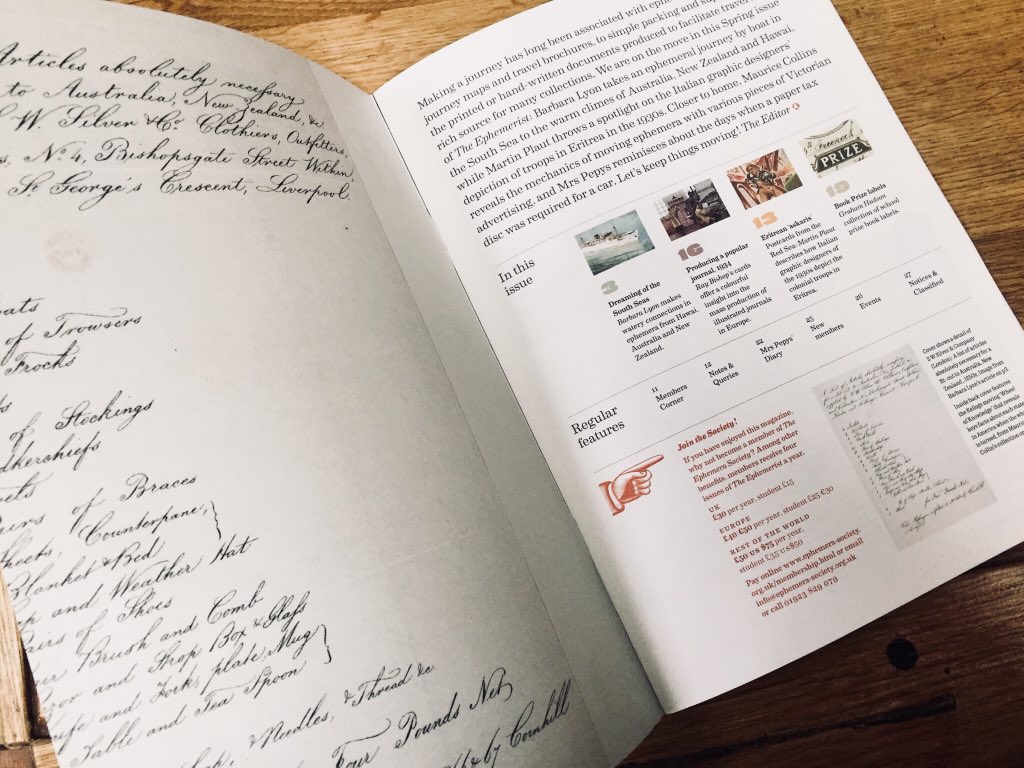 Articles absolutely necessary
to Australia, New Zealand, &c
W. Silver & Co. Clothiers, Outfitters,
No. 4, Bishopsgate Street Within
St. George's Crescent, Liverpool.
of Trowsers
Frocks
of Stockings
of Braces
Counterpane,
Blanket & Bed
and Weather Hat
of Shoes
Brush and Comb
and Strop Box & Glass
and Fork, plate, Mug
Table and Tea Spoon
Needles, & Thread &c
Four Pounds Net,
& 67 Cornhill
Making a journey has long been associated with
journey maps and travel brochures, to simple packing and
the printed or hand-written documents produced to facilitate travel
rich source for many collections. We are on the move in this Spring issue
of The Ephemerist: Barbara Lyon takes an ephemeral journey by boat in
the South Sea to the warm climes of Australia, New Zealand and Hawai,
while Martin Plaut throws a spotlight on the Italian graphic designers'
depiction of troops in Eritrea in the 1930s. Closer to home, Maurice Collins
reveals the mechanics of moving ephemera with various pieces of Victorian
advertising, and Mrs Pepys reminisces about the days when a paper tax
disc was required for a car. Let's keep things moving! The Editor
In this
issue
3
Dreaming of the
South Seas
Barbara Lyon makes
watery connections in
ephemera from Hawai,
Australia and New
Zealand.
16
Producing a popular
journal, 1934
Roy Bishop's cards
offer a colourful
insight into the
mass production of
illustrated journals
in Europe.
13
Eritrean 'askaris'
Postcards from the
Red Sea: Martin Plaut
describes how Italian
graphic designers of
the 1930s depict the
colonial troops in
Eritrea.
PRIZE
19
Book Prize labels
Graham Hudson
collection of school
prize book labels.
Regular
features
11
Members
Corner
12
Notes &
Queries
22
Mrs Pepys'
Diary
25
New
members
26
Events
27
Notices &
Classified
Join the Society!
If you have enjoyed this magazine,
why not become a member of The
Ephemera Society? Among other
benefits, members receive four
issues of The Ephemerist a year.
UK
£30 per year, student £15
EUROPE
£40 €50 per year, student £25 €30
REST OF THE WORLD
£50 US $75 per year,
student £35 US $50
Pay online www.ephemera-society.
org.uk/membership.html or email
info@ephemera-society.org.uk
or call 01923 829 079
Cover shows a detail of
S W Silver & Company
(London). A list of articles
absolutely necessary for a
Zealand, 1850s. Image from
Barbara Lyon's article on p3.
Inside back cover features